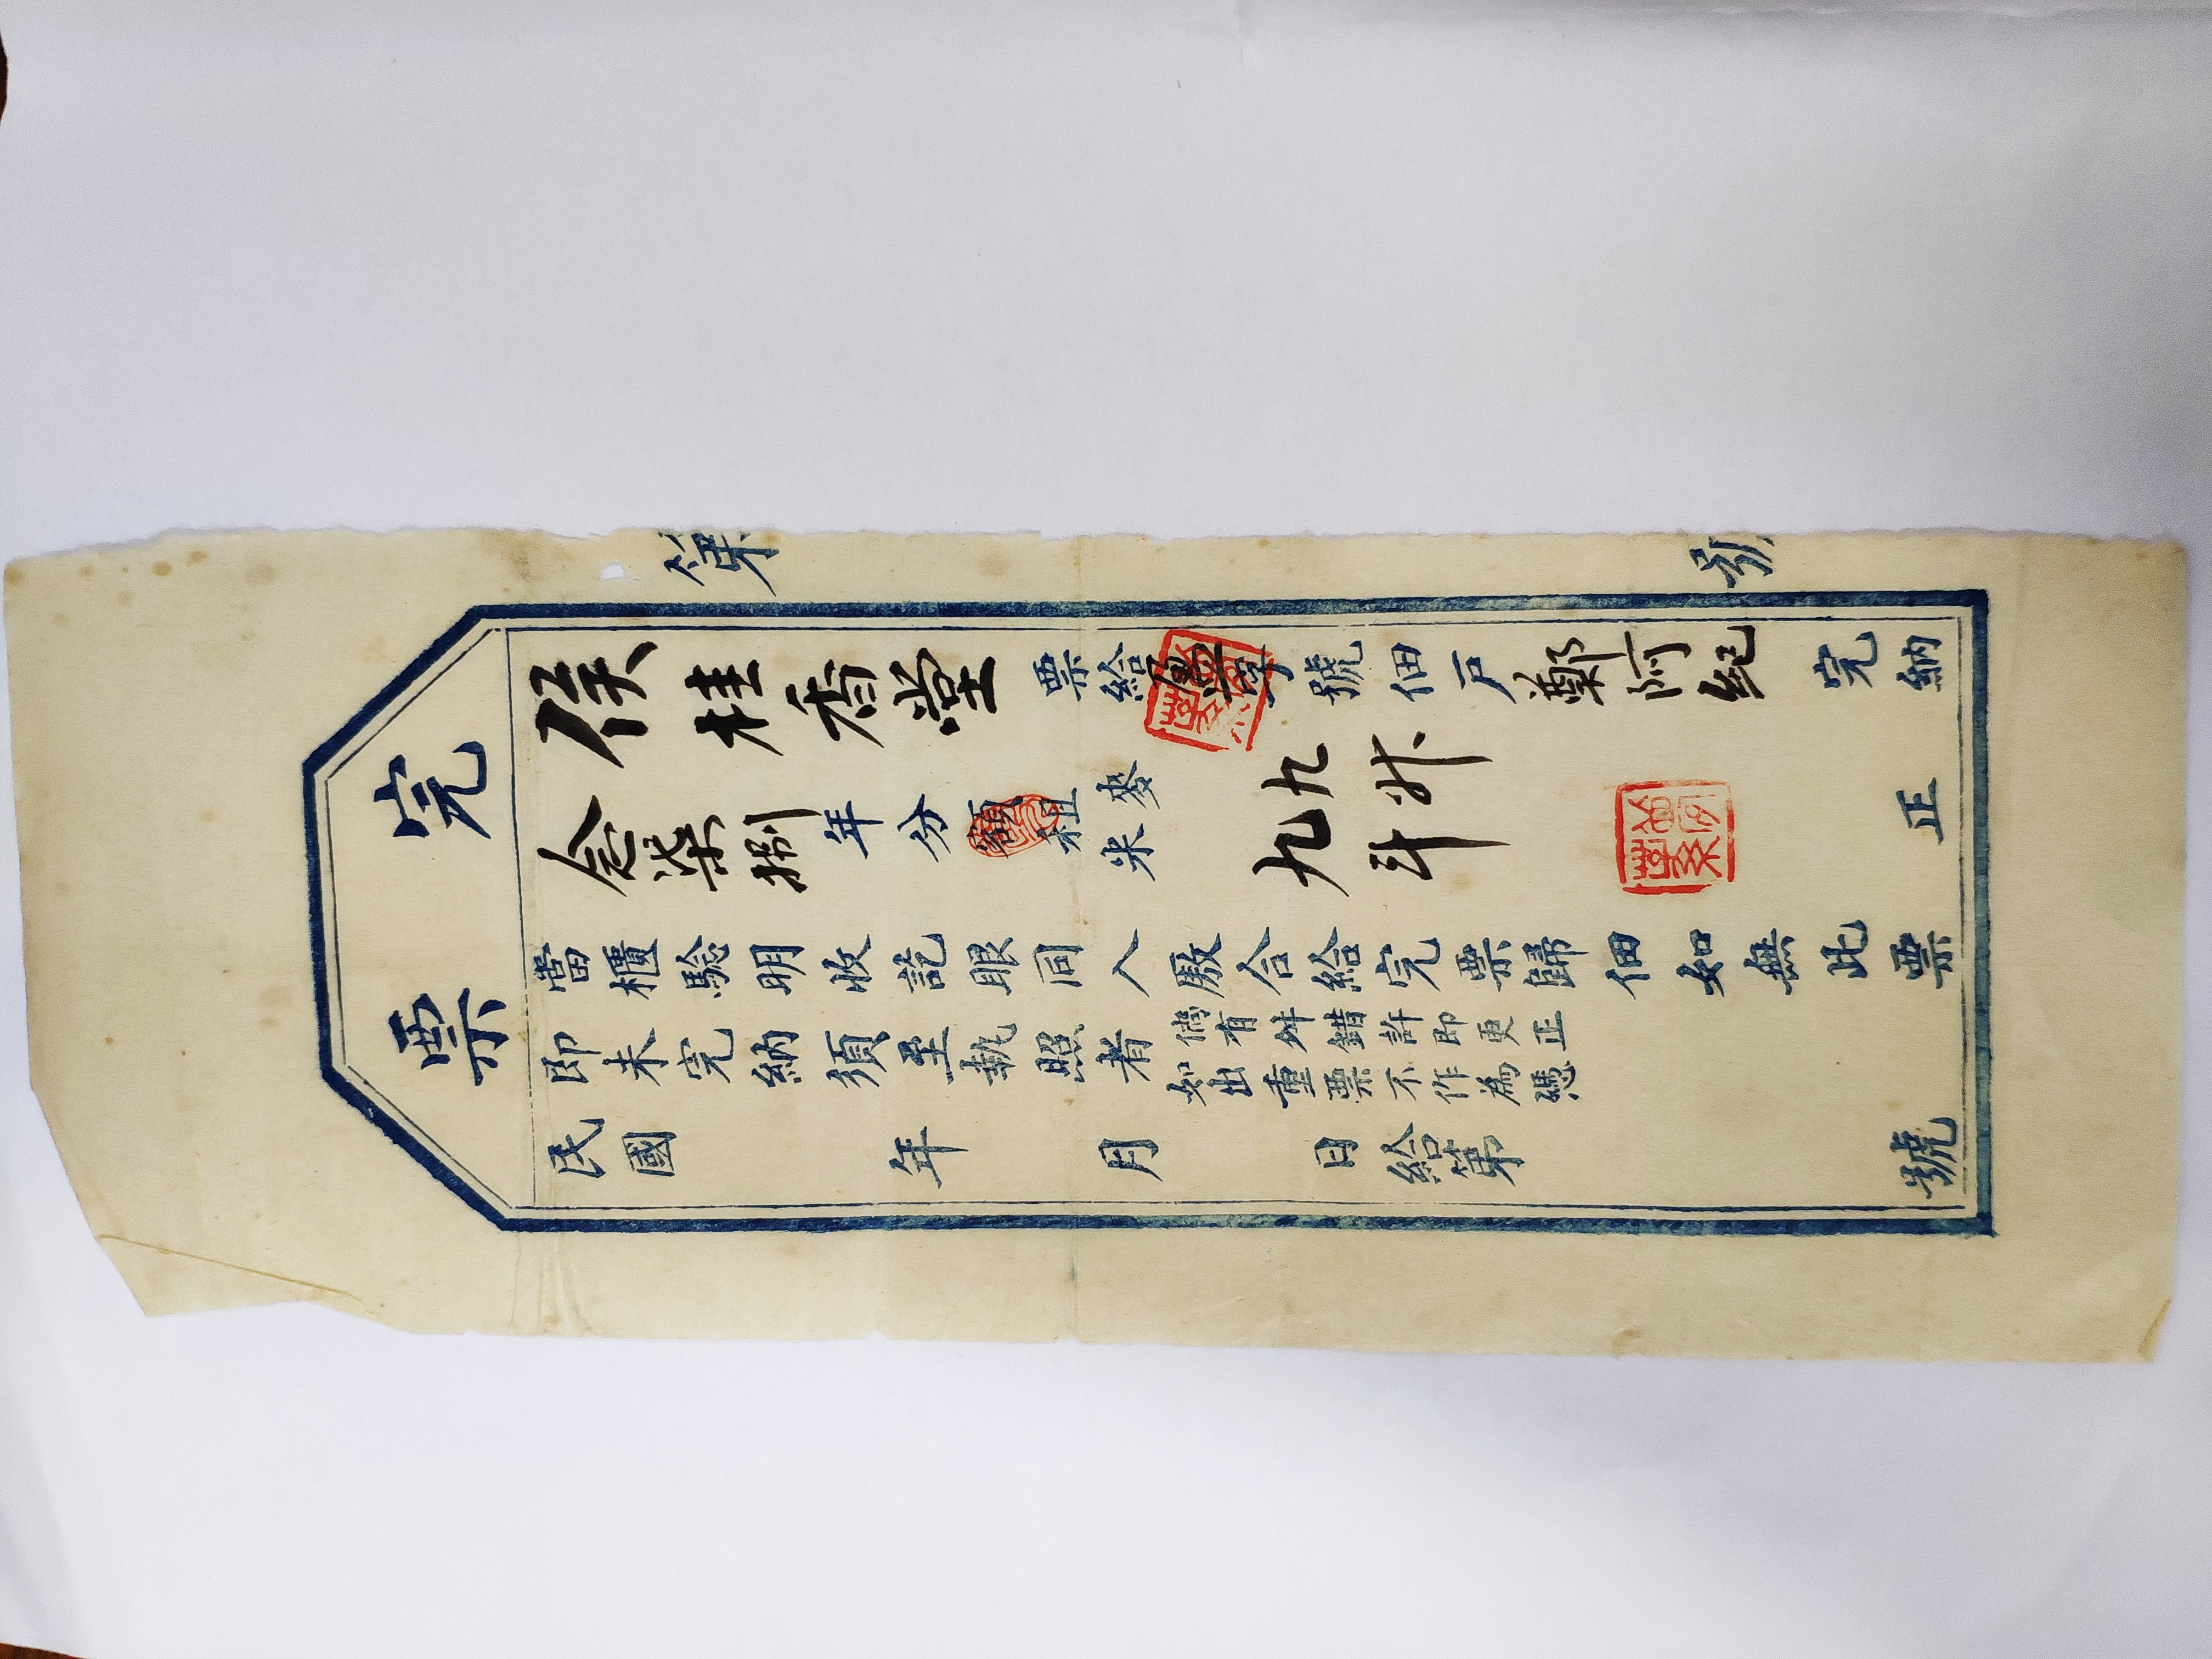 完票
第 號
侯桂香堂票給 字號佃戶鄭阿紀完納
念柒捌年分額租
麥 九升
米 九斗
正
當櫃驗明收訖眼同入厫合給完票歸佃如無此票
即未完納須至執照者
倘有舛錯許即更正
如出重票不作為憑
民國 年 月 日給第 號